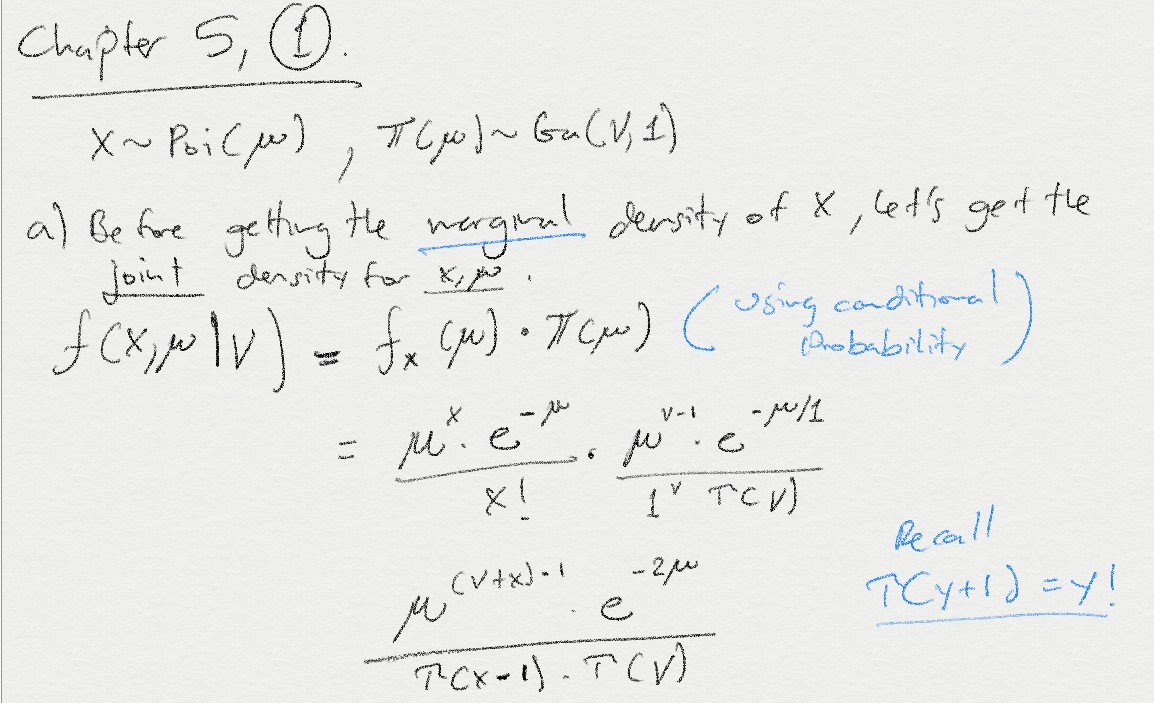 Chapter 5, ①.
X ~ Poi(μ) , π(μ) ~ Ga(ν, 1)
a) Before getting the marginal density of X, let's get the
joint density for x, μ.
f(x, μ | ν) = fₓ(μ) · π(μ) (using conditional probability)
= μ^x · e^(-μ) / x! · μ^(ν-1) · e^(-μ/1) / 1^ν Γ(ν)
Recall
μ^((ν+x)-1) · e^(-2μ) / Γ(x-1) · Γ(ν)
Γ(y+1) = y!